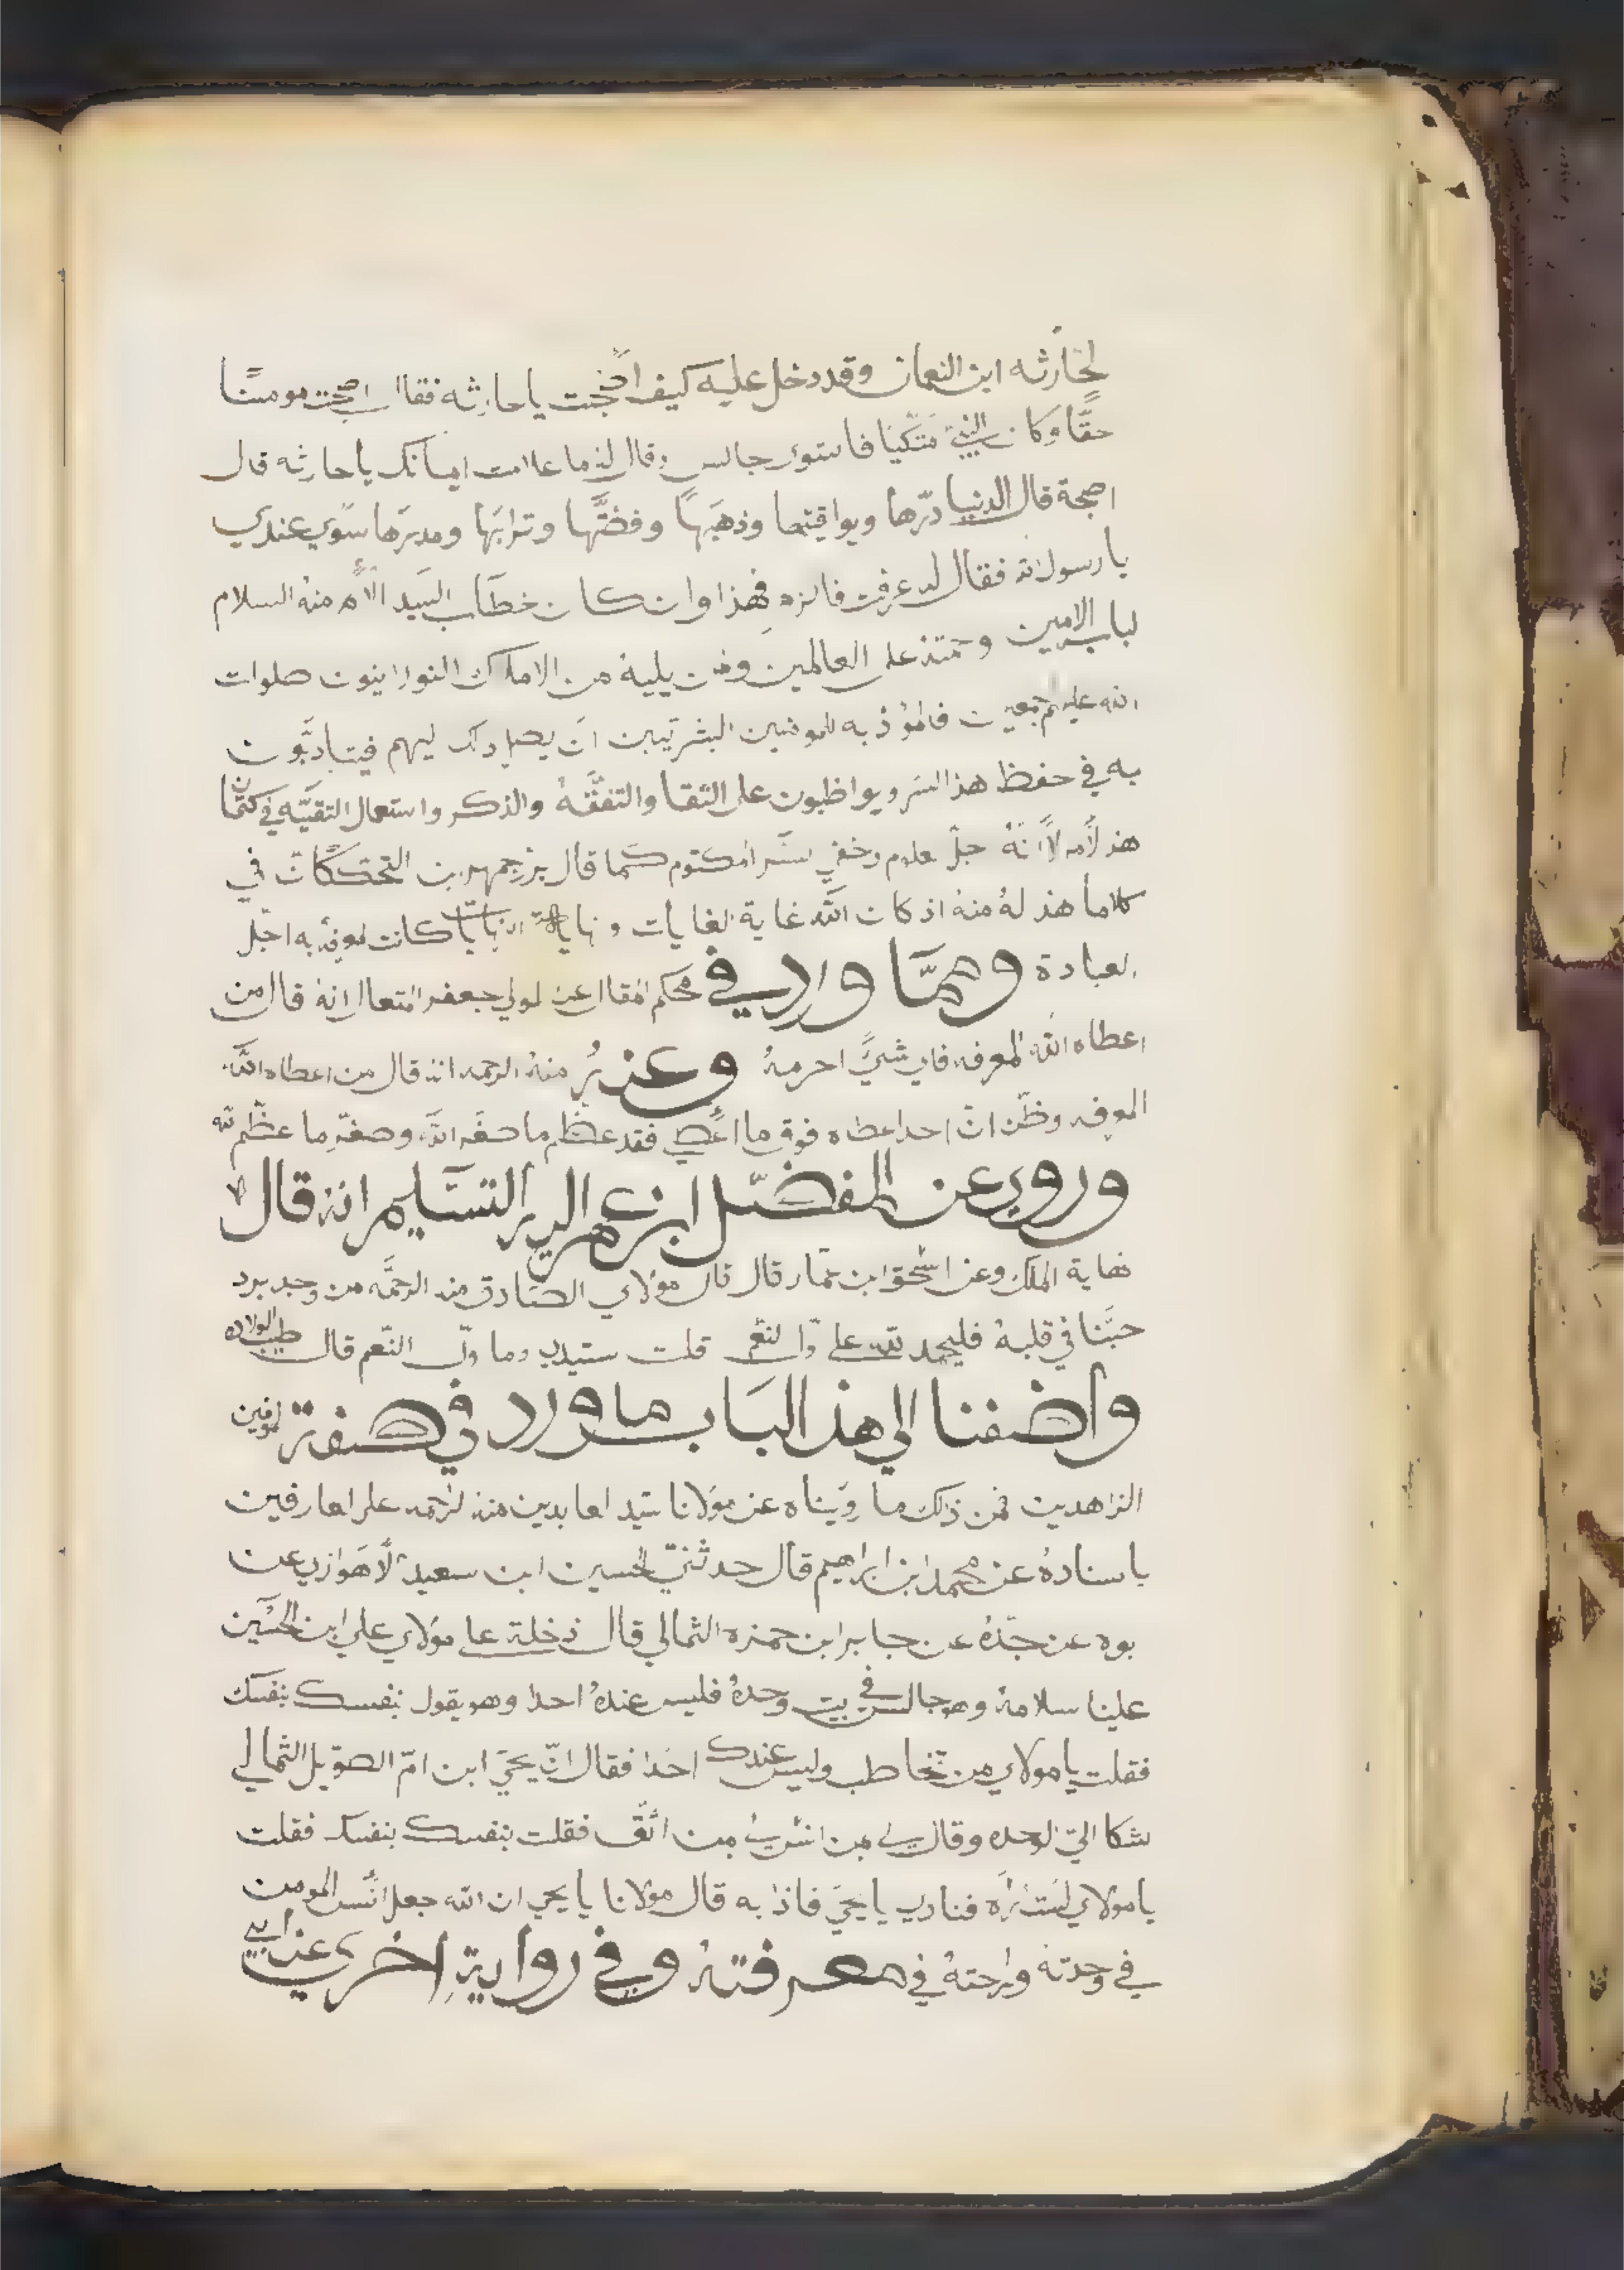 لحارثه ابن النعمان وقد دخل عليه كيف اصبحت يا حارثه فقال اصبحت مومنًا
حقًّا وكان النبي متكيًا فاستوى جالس وقال له ما علامت ايمانك يا حارثه قال
اصبحة قال الدنيا درّها ويواقيتها وذهبَها وفضّتها وترابَها ومدرَها سوي عندي
يا رسول الله فقال له عرفت فالزم فهذا وان كان خطاب السيد الام منه السلام
لباب الامين وحجته على العالمين ومن يليه من الاملاك النورانيون صلوات
الله عليهم جمعين فالمؤذ به للمومنين البشريّين ان يصل ذلك ليهم فيتادّبون
به في حفظ هذ السر ويواظبون على التقا والتفقّه والذكر واستعمال التقيّه في كتمان
هذ لامر لانّه جلّ علوم وخفي سرّ امكتوم كما قال بزرجمهر ابن التحتكان في
كلاما هذ له منه اذ كان الله غاية الغايات ونهاية النهايات كانت لمعرفه به اجل
العبادة ومما وارد في محكم المقال عن لمولي جعفر المتعال انه قال من
اعطاه الله المعرفه فاي شيً احرمهُ وعنهُ منهُ الرحمه انه قال من اعطاه الله
المعرفه وظّن انّ احدا عطاه فوق ما اعطي فقد عظّم ما صغّره الله وصغّر ما عظّم لله
وروي عن المفضّل ابن عمر اليه التسليم انه قال لا
نهاية الملك وعن اسحق ابن عمّار قال قال مولاي الصادق منه الرحمّه من وجد برد
حبّنا في قلبهُ فليحمد لله على وّال لنعم قلت سيدي وما وّل النّعم قال طيب الولاده
واضفنا الي هذ الباب ما ورد في صفة لموفين
الزاهدين فمن ذلك ما رويناه عن مولانا سيد لعابدين منه لرحمه على لعارفين
باسنادهُ عن محمد ابن ابراهيم قال حدثني لحسين ابن سعيد لاهوازي عن
بوه عن جدّهُ عن جابر ابن حمزه الثمالي قال دخلة على مولاي علي ابن الحسَين
علينا سلامهُ وهو جالس في بيت وحدهُ فليس عندهُ احدا وهو يقول بنفسك بنفسك
فقلت يا مولاي من تخاطب وليس عندك احدا فقال انّ يحيَ ابن امّ الصويل الثمالي
شكا اليّ الوحده وقال لي من انس بهُ من اثق فقلت بنفسك بنفسك فقلت
يا مولاي لست نرَه فنادي يا يحيَ فاذا به قال مولانا يا يحيي ان الله جعل انُس المومن
في وحدته وراحتهُ في معرفتهُ وفي رواية اخري عن ابي